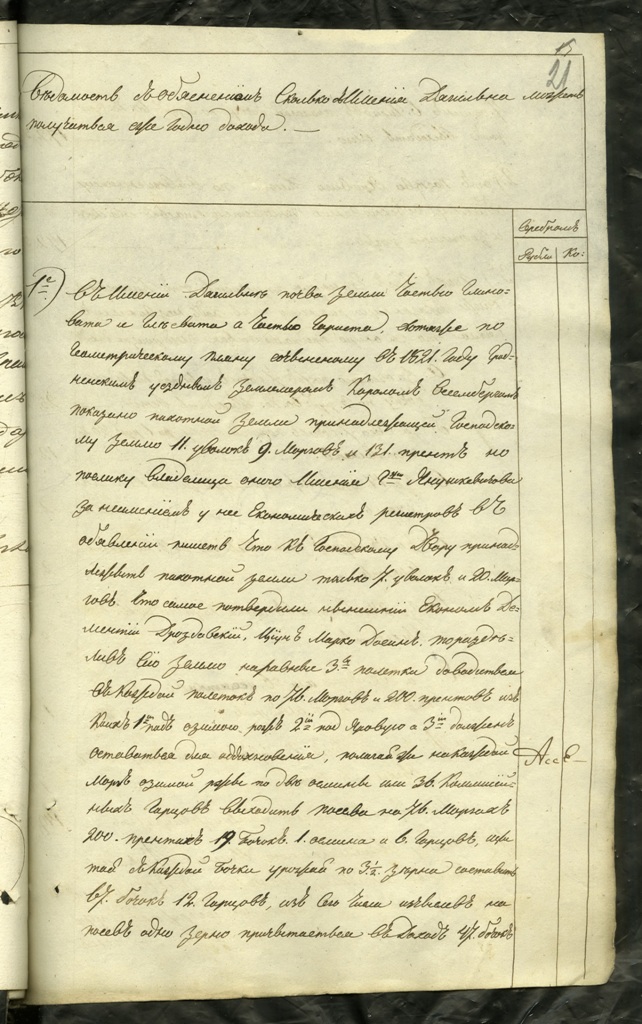 21
Вѣдомость съ объясненіемъ Сколько съ Имѣнія Даильна можетъ
получаться еже годно дохода. —
Серебромъ
Рубли Ко:
1е) Въ Имѣніи почва земли Частью Глино-
вата и а Частью, которые по
Геометрическому плану сочиненому въ 1821. Году Грод-
ненскимъ уезднымъ Землемеромъ Каролемъ
показано пахотной Земли принадлежащей Господско-
му Землю 11. уволокъ 9. Морговъ и 131. прентъ но
поелику владелица оного Имѣнія Янушкевичова
за неимѣніемъ у нее Економическихъ регистровъ въ
объявленіи пишетъ Что къ Господскому Двору принад-
лежитъ пахотной земли только 7. уволокъ и 20. Мор-
говъ. Что самое потвердили нынешній Економъ До-
ментій Дроздовскій, Марко, то раздѣ-
ливъ Сію Землю на равные 3. полетки доводится
въ Каждой полетокъ по 76. Морговъ и 200. прентовъ изъ
Коихъ 1й подъ озимою рожъ 2й под Яровую а 3й долженъ
оставаться для отдохновенія, полагая на каждой
Моргъ озимой ржи по двѣ осмины или 36.
Гарцовъ Выходитъ посева на 76. Моргахъ
200. прентахъ 19 Бочокъ. 1. осмина и 6. Гарцовъ, щи-
тая съ Каждой Бочки урожай по 3½ Зерна составитъ
67. бочокъ 12. Гарцовъ, изъ Сего Числа на
посевъ одно зерно причитается въ Доходъ 47. бочокъ